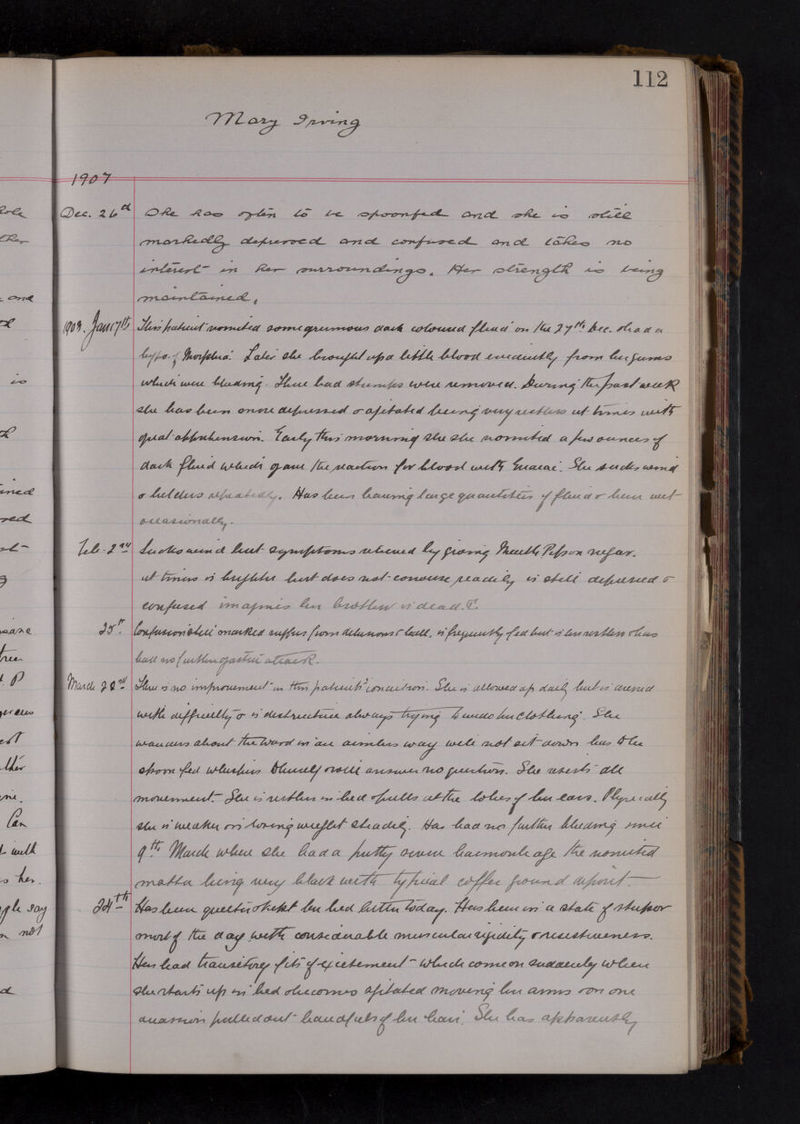 112
Mary Irving
1907
Dec. 26th She has often to be spoonfed and she is still
markedly depressed and confused and takes no
interest in her surroundings. Her strength is being
maintained.
Jan 7th This patient vomited some grumous dark coloured fluid on the 27th Dec. & had a
hypo. of Morphia. Later she brought up a little blood evidently from her gums
which were bleeding. Three bad stumps were removed. During the past week
she has been more depressed & agitated being very restless at times with
great apprehension. Early this morning she she vomited a few ounces of
dark fluid which gave the reaction for blood with Guaiac. She sucks wind
& belches repeatedly. Has been having large quantities of fluid & been wet
occasionally.
Feb. 2nd Sucks wind but symptoms relieved by giving
at times is brighter but does not converse readily is still depressed &
confused imagines her brother is dead.
25th Confusion still marked suffers from delusions is frequently fed but is less restless & has
had no further gastric attack.
March 22nd There is no improvement in this patient's condition. She is allowed up daily but is dressed
with difficulty & is destructive always trying to undo her clothing. She
wanders about the ward in an aimless way will not sit down has to be
spoon fed whispers to herself & will answer no question. She resists all
movement. She is restless in bed & pulls at the lobes of her ears. Physically
she is weaker & is losing weight steadily. Has had no further bleeding since
9th March when she had a pretty severe haemorrhage the vomited
matter being very black with typical coffee ground deposit.
24th Has been quieter & kept her bed better today. Has been in a state of stupor
most of the day with considerable muscular rigidity & resistiveness.
Has had transitory fits of excitement which come on suddenly when
she starts up in bed & becomes agitated moving her arms & on one
occasion pulled out handfuls of her hair. She has apparently